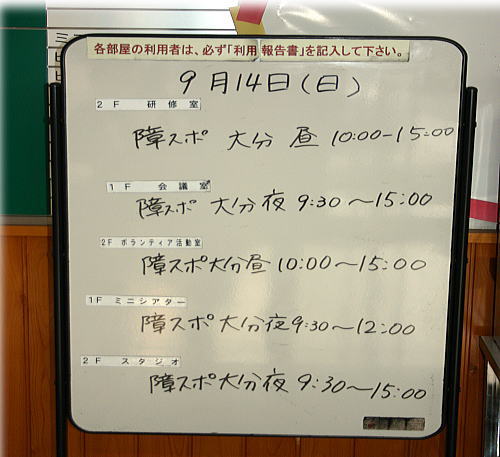 各部屋の利用者は、必ず「利用報告書」を記入して下さい。
9月14日(日)
2F 研修室
障スポ 大分 昼 10:00-15:00
1F 会議室
障スポ 大分 夜 9:30〜15:00
2F ボランティア活動室
障スポ大分昼 10:00〜15:00
1F ミニシアター
障スポ大分夜 9:30〜12:00
2F スタジオ
障スポ大分夜 9:30〜15:00